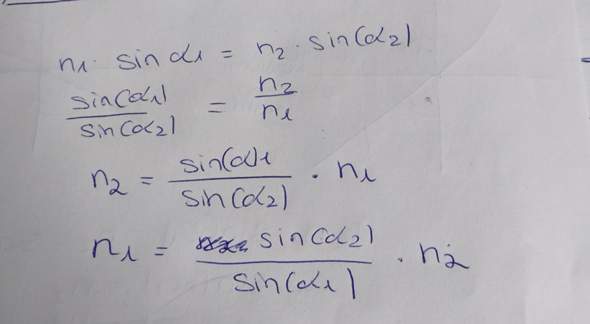 n₁ · sin α₁ = n₂ · sin(α₂)
sin(α₁) / sin(α₂) = n₂ / n₁
n₂ = sin(α)₁ / sin(α₂) · n₁
n₁ = sin(α₂) / sin(α₁) · n₂